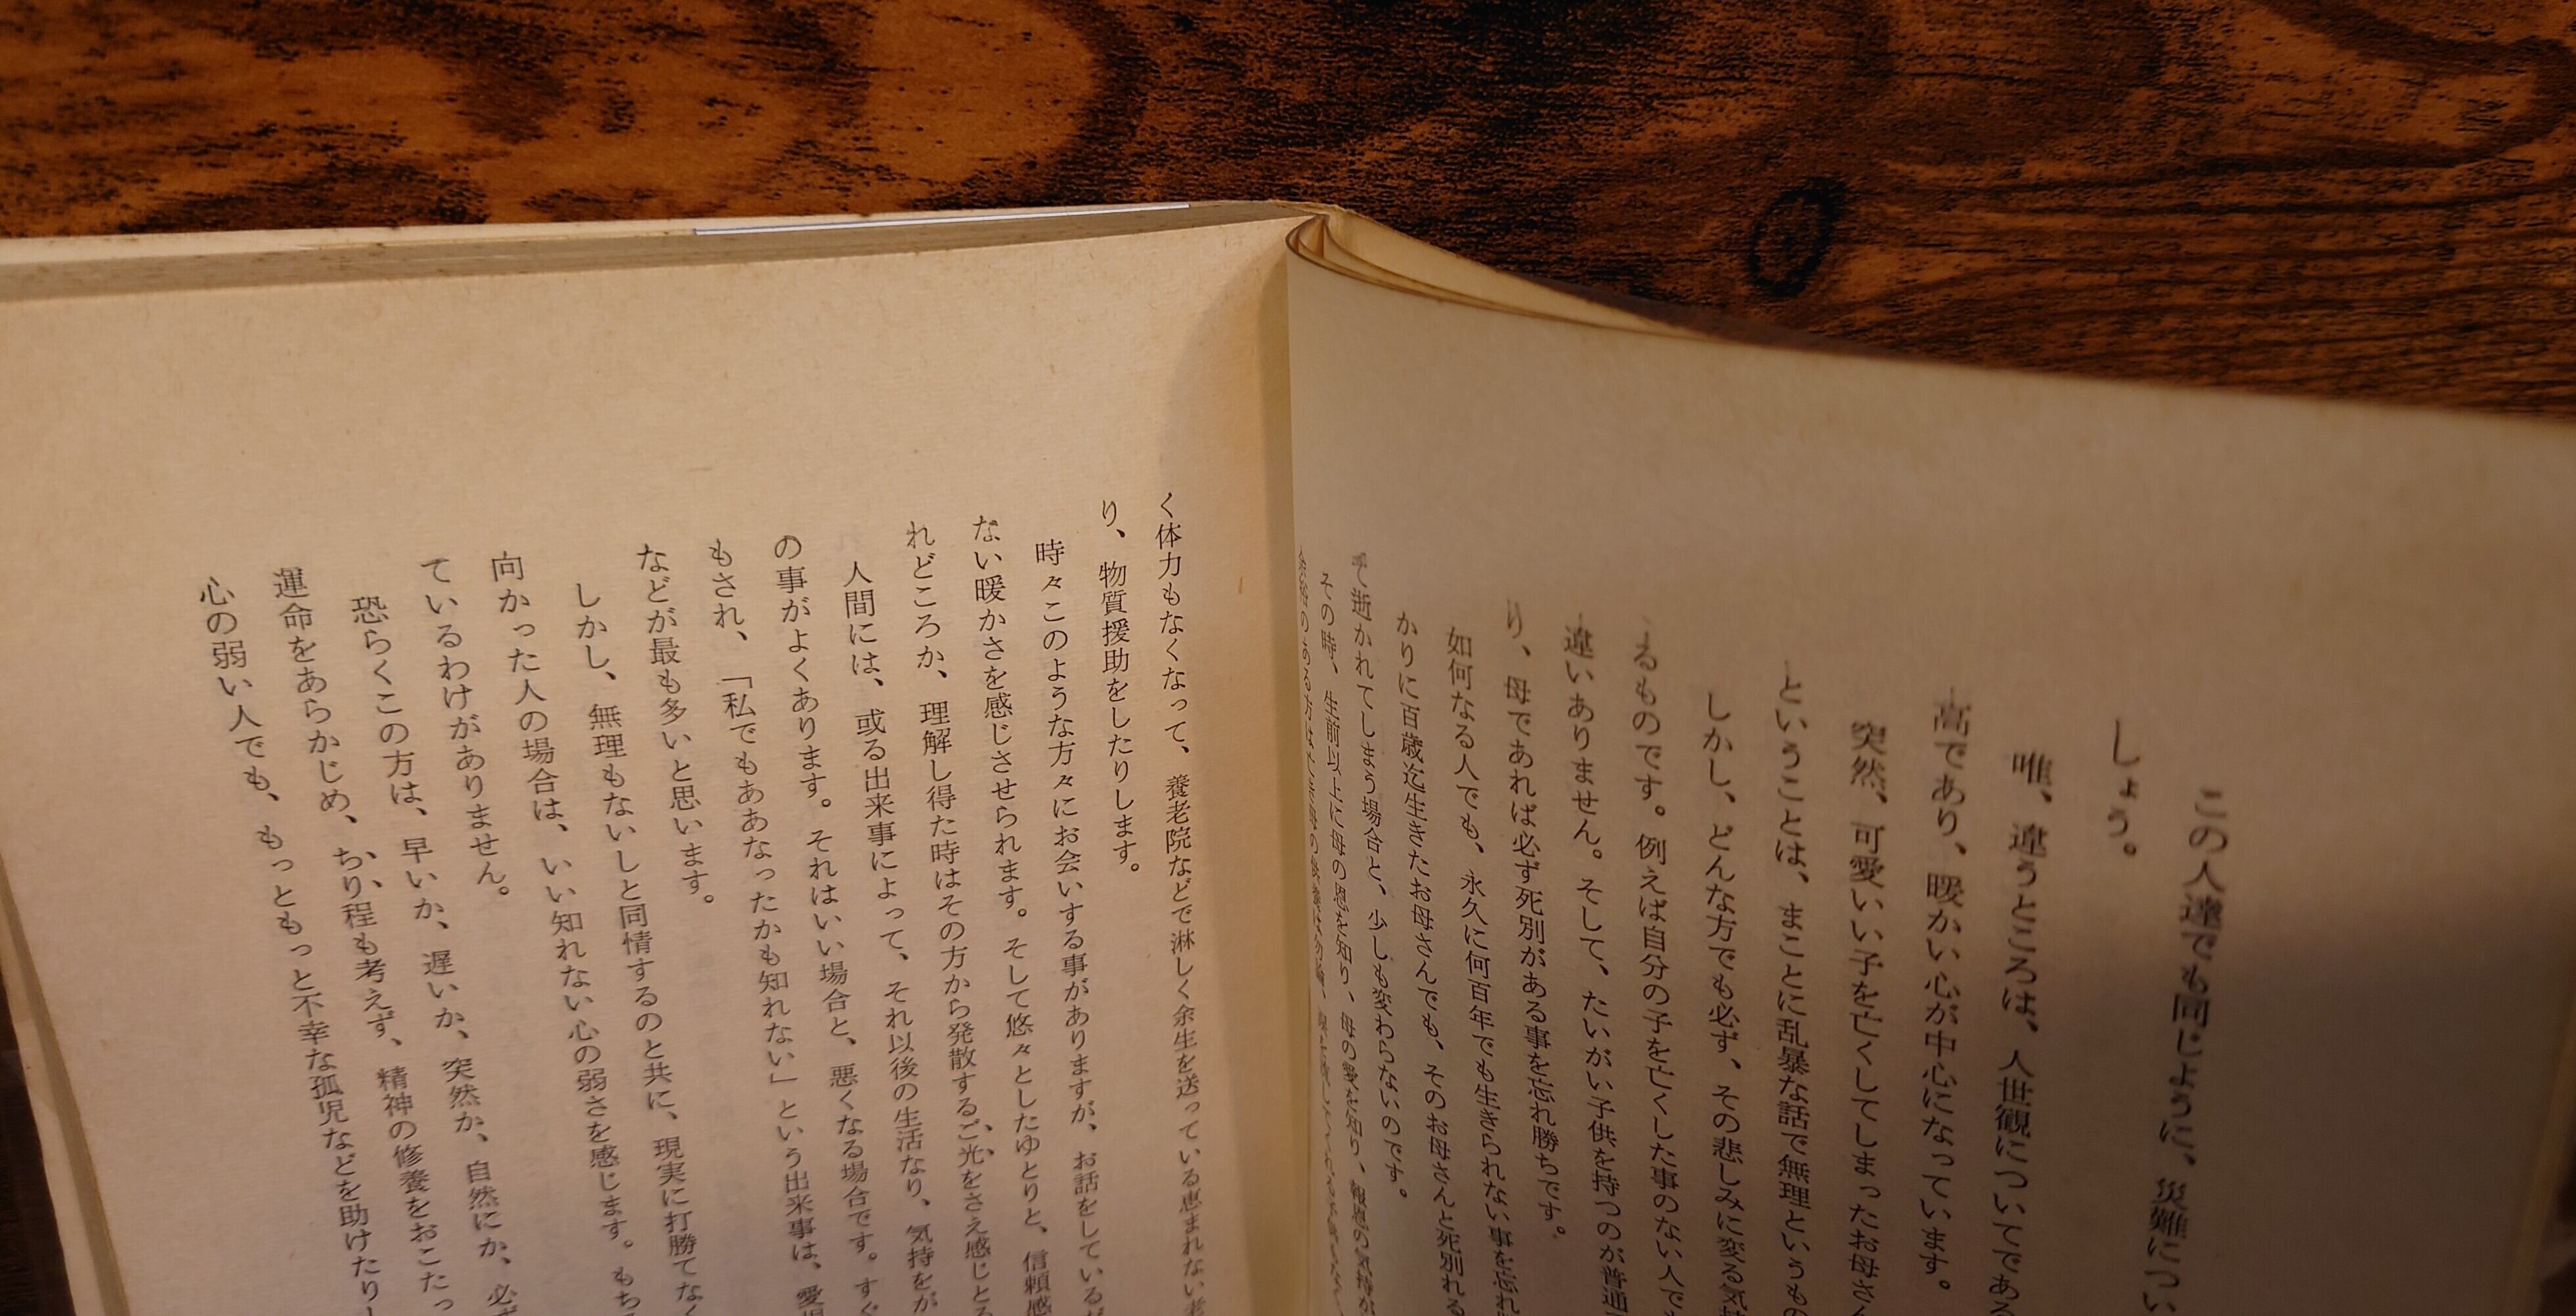 この人達でも同じように、災難につい
しょう。
唯、違うところは、人世観についてである
高であり、暖かい心が中心になっています。
突然、可愛いい子を亡くしてしまったお母さん
ということは、まことに乱暴な話で無理というもの
しかし、どんな方でも必ず、その悲しみに変る気持
るものです。例えば自分の子を亡くした事のない人でも
違いありません。そして、たいがい子供を持つのが普通
り、母であれば必ず死別がある事を忘れ勝ちです。
如何なる人でも、永久に何百年でも生きられない事を忘れ
かりに百歳迄生きたお母さんでも、そのお母さんと死別れる
て逝かれてしまう場合と、少しも変わらないのです。
その時、生前以上に母の恩を知り、母の愛を知り、報恩の気持が
く体力もなくなって、養老院などで淋しく余生を送っている恵まれない老
り、物質援助をしたりします。
時々このような方々にお会いする事がありますが、お話をしているが
ない暖かさを感じさせられます。そして悠々としたゆとりと、信頼感
れどころか、理解し得た時はその方から発散するご光をさえ感じとる
人間には、或る出来事によって、それ以後の生活なり、気持をが
の事がよくあります。それはいい場合と、悪くなる場合です。すぐ
もされ、「私でもああなったかも知れない」という出来事は、愛児
などが最も多いと思います。
しかし、無理もないしと同情するのと共に、現実に打勝てなく
向かった人の場合は、いい知れない心の弱さを感じます。もち
ているわけがありません。
恐らくこの方は、早いか、遅いか、突然か、自然にか、必ず
運命をあらかじめ、ちり程も考えず、精神の修養をおこたっ
心の弱い人でも、もっともっと不幸な孤児などを助けたり